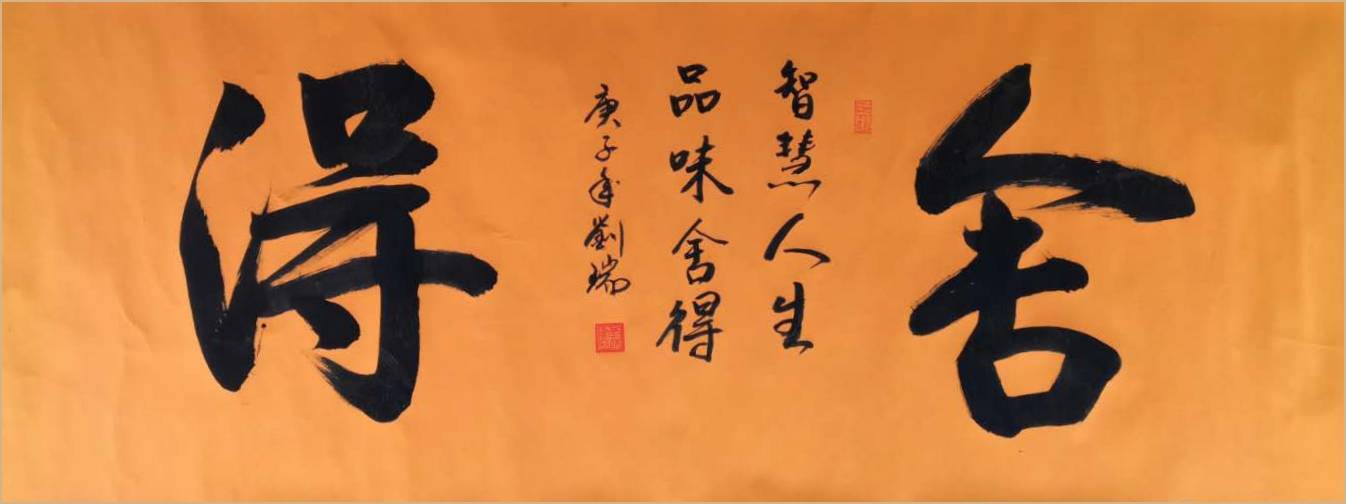 舍
智慧人生
品味舍得
庚子年劉瑞
得